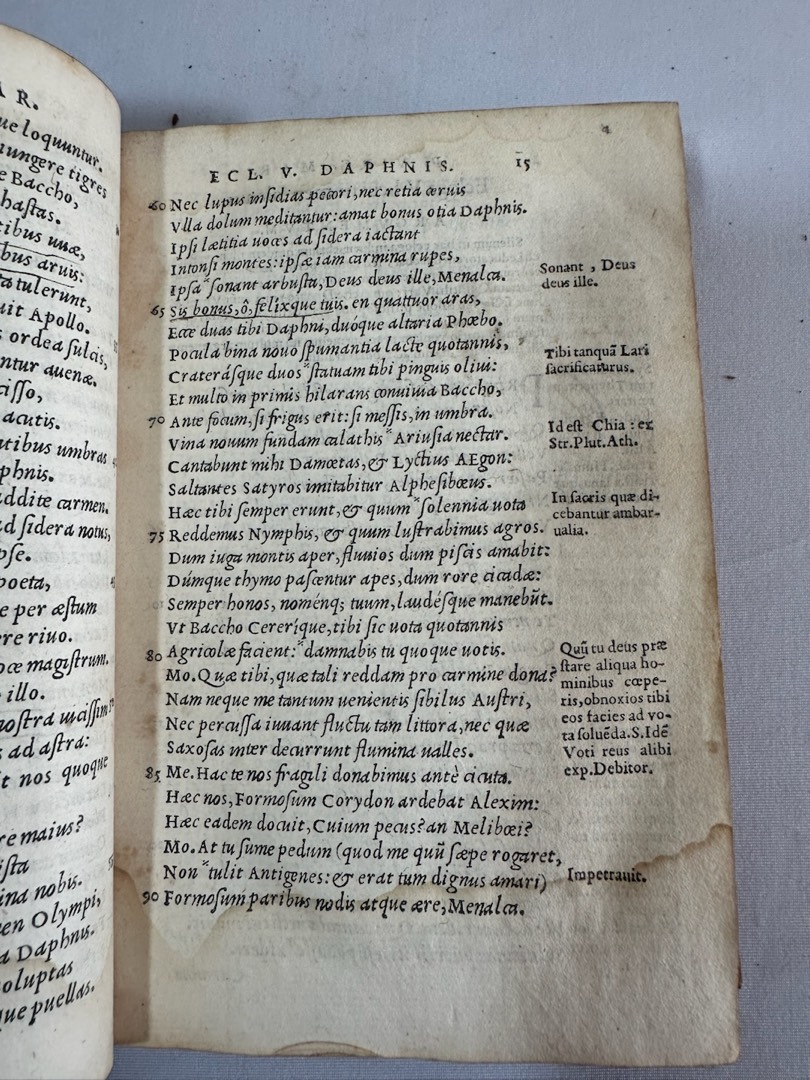 A R.
ue loquuntur.
iungere tigres
e Baccho,
hastas.
tibus uuæ,
bus aruis:
ta tulerunt,
uit Apollo.
s ordea sulcis,
ntur auenæ.
cisso,
acutis.
tibus umbras
phnis.
addite carmen.
ad sidera notus,
pse.
poeta,
e per æstum
ere riuo.
oce magistrum.
illo.
nostra uicissim
s ad astra:
it nos quoque
re maius?
ista
ina nobis.
en Olympi,
a Daphnis.
oluptas
que puellas.
ECL. V. DAPHNIS. 15
60 Nec lupus insidias pecori, nec retia ceruis
Vlla dolum meditantur: amat bonus otia Daphnis.
Ipsi lætitia uoces ad sidera iactant
Intonsi montes: ipsæ iam carmina rupes,
Ipsa * sonant arbusta, Deus deus ille, Menalca.
65 Sis bonus, ô, felixque tuis. en quattuor aras,
Ecce duas tibi Daphni, duóque altaria Phœbo.
Pocula bina nouo spumantia lacte quotannis,
Craterásque duos * statuam tibi pinguis oliui:
Et multo in primis hilarans conuiuia Baccho,
70 Ante focum, si frigus erit: si messis, in umbra.
Vina nouum fundam calathis * Ariusia nectar.
Cantabunt mihi Damœtas, & Lyctius AEgon:
Saltantes Satyros imitabitur Alphesibœus.
Hæc tibi semper erunt, & quum * solennia uota
75 Reddemus Nymphis, & quum lustrabimus agros.
Dum iuga montis aper, fluuios dum piscis amabit:
Dúmque thymo pascentur apes, dum rore cicadæ:
Semper honos, noménq; tuum, laudésque manebūt.
Vt Baccho Cereríque, tibi sic uota quotannis
80 Agricolæ facient: * damnabis tu quoque uotis.
Mo. Quæ tibi, quæ tali reddam pro carmine dona?
Nam neque me tantum uenientis sibilus Austri,
Nec percussa iuuant fluctu tam littora, nec quæ
Saxosas inter decurrunt flumina ualles.
85 Me. Hac te nos fragili donabimus antè cicuta.
Hæc nos, Formosum Corydon ardebat Alexim:
Hæc eadem docuit, Cuium pecus? an Melibœi?
Mo. At tu sume pedum (quod me quū sæpe rogaret,
Non * tulit Antigenes: & erat tum dignus amari)
90 Formosum paribus nodis atque ære, Menalca.
Sonant, Deus
deus ille.
Tibi tanquā Lari
sacrificaturus.
Id est Chia: ex
Str. Plut. Ath.
In sacris quæ di-
cebantur ambar-
ualia.
Quū tu deus præ
stare aliqua ho-
minibus cœpe-
ris, obnoxios tibi
eos facies ad vo-
ta soluēda. S. Idē
Voti reus alibi
exp. Debitor.
Impetrauit.